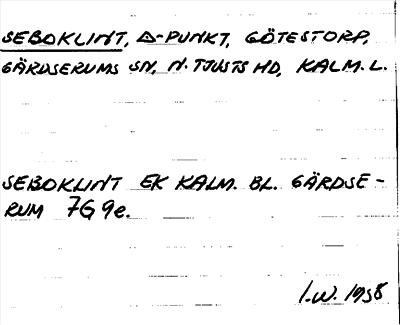 SEBOKLINT, Δ-PUNKT, GÖTESTORP,
GÄRDSERUMS SN, N. TJUSTS HD, KALM. L.
SEBOKLINT EK KALM. BL. GÄRDSE-
RUM 7G 9e.
I.W. 1958